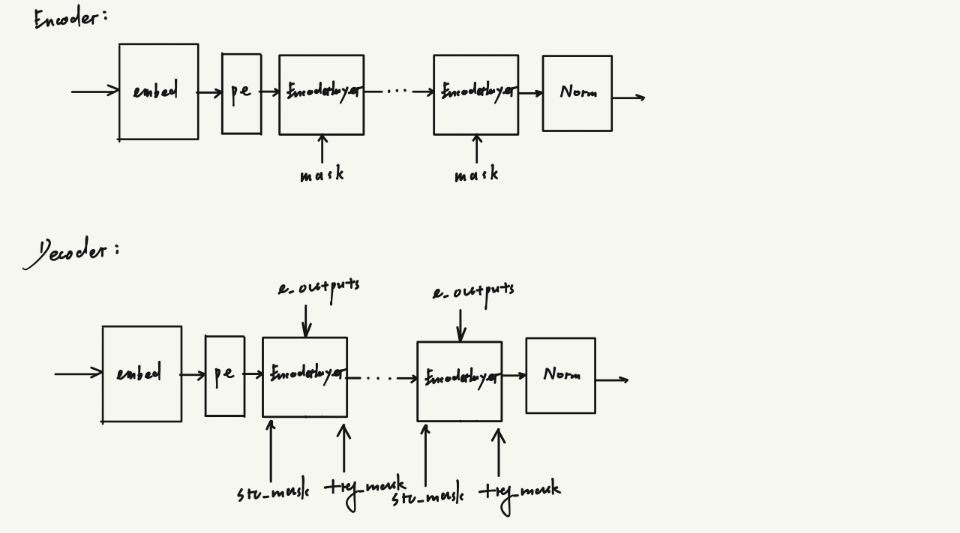 Encoder:
embed
pe
Encoderlayer
...
Encoderlayer
Norm
mask
mask
Decoder:
e_outputs
e_outputs
embed
pe
Encoderlayer
...
Encoderlayer
Norm
src_mask
trg_mask
src_mask
trg_mask